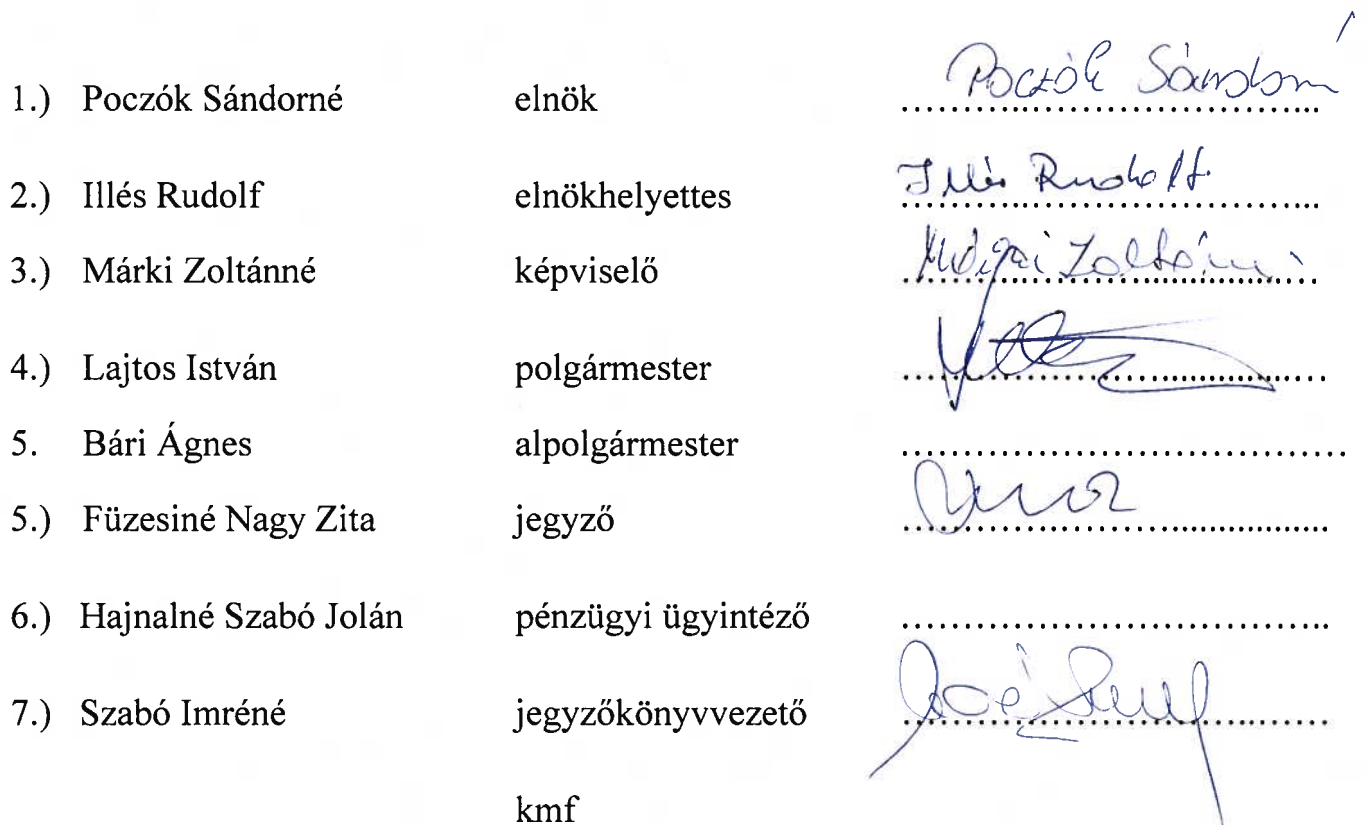 1.) Poczók Sándorné elnök Poczók Sándorné
2.) Illés Rudolf elnökhelyettes Illés Rudolf
3.) Márki Zoltánné képviselő Márki Zoltánné
4.) Lajtos István polgármester ..............................
5. Bári Ágnes alpolgármester ..............................
5.) Füzesiné Nagy Zita jegyző ..............................
6.) Hajnalné Szabó Jolán pénzügyi ügyintéző ..............................
7.) Szabó Imréné jegyzőkönyvvezető ..............................
kmf